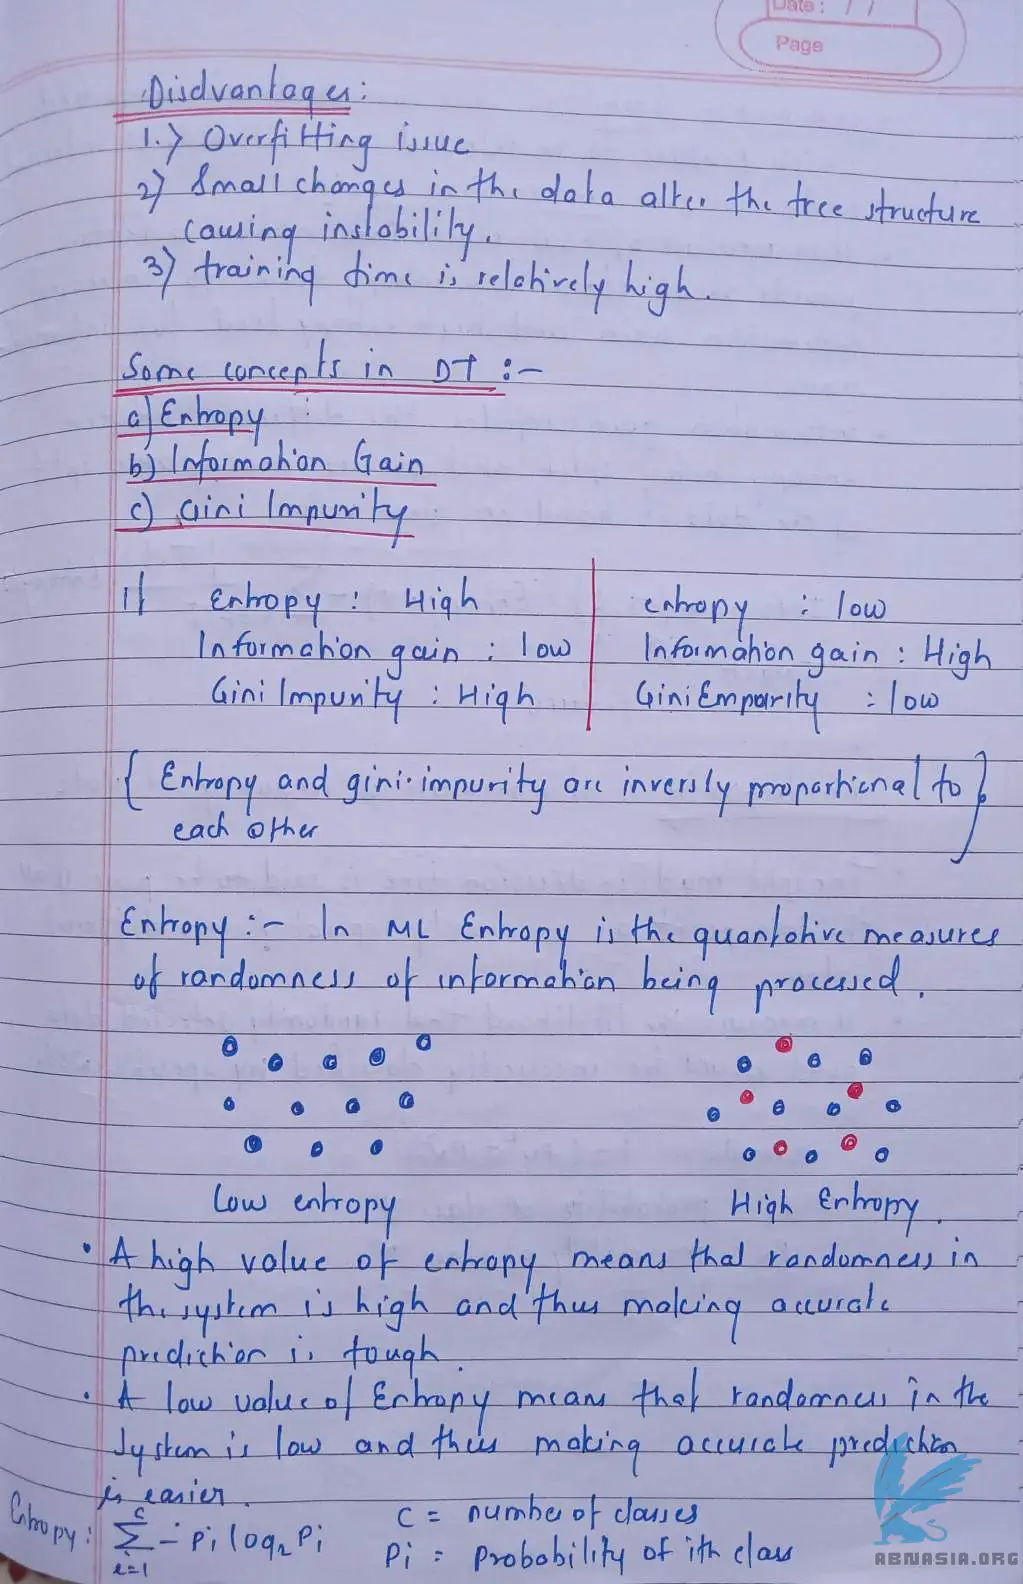 Date : / /
Page
Disdvantages:
1.) Overfitting issue
2) Small changes in the data alter the tree structure
causing instability.
3) training time is relatively high.
Some concepts in DT :-
a) Entropy
b) Information Gain
c) Gini Impurity
If Entropy : High entropy : low
Information gain : low Information gain : High
Gini Impurity : High Gini Emparity : low
{ Entropy and gini-impurity are inversly proportional to }
each other
Entropy :- In ML Entropy is the quantative measures
of randomness of information being processed.
Low entropy High Entropy.
• A high value of entropy means that randomness in
the system is high and thus making accurate
prediction is tough.
• A low value of Entropy means that randomness in the
system is low and thus making accurate prediction
is easier.
Entropy : c C = number of classes
∑ - Pi log2 Pi Pi = Probability of ith class
i=1
ABNASIA.ORG